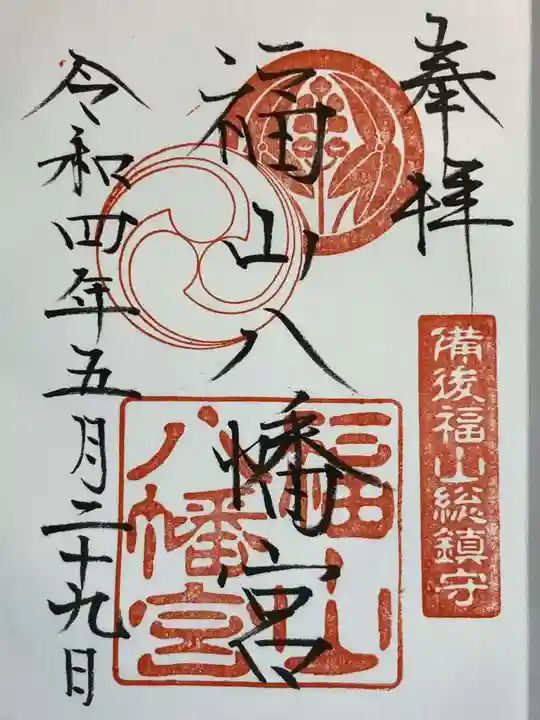 奉拝
備後福山総鎮守
福山八幡宮
福山
八幡宮
令和四年五月二十九日